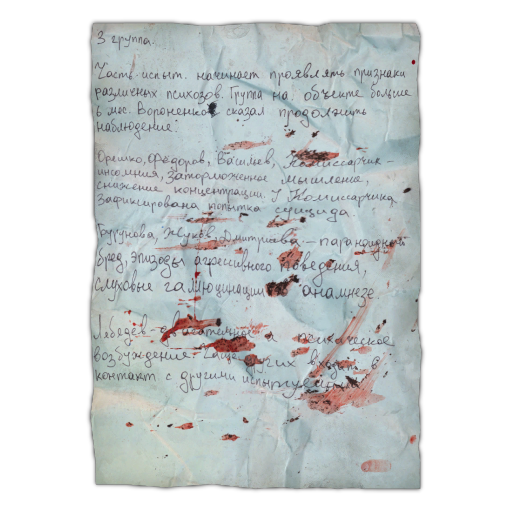 3 группа.
Часть испыт. начинает проявлять признаки
различных психозов. Группа на объекте больше
6 мес. Вороненков сказал продолжить
наблюдение.
Орешко, Федоров, Васильев, Комиссарчик -
инсомния, заторможенное мышление,
снижение концентрации. У Комиссарчика
зафиксирована попытка суицида
Бурунова, Жуков, Дмитриева - параноидный
бред, эпизоды агрессивного поведения,
слуховые галлюцинации в анамнезе
Лебедев - и психическое
возбуждение. Чаще других входит в
контакт с другими испытуемыми